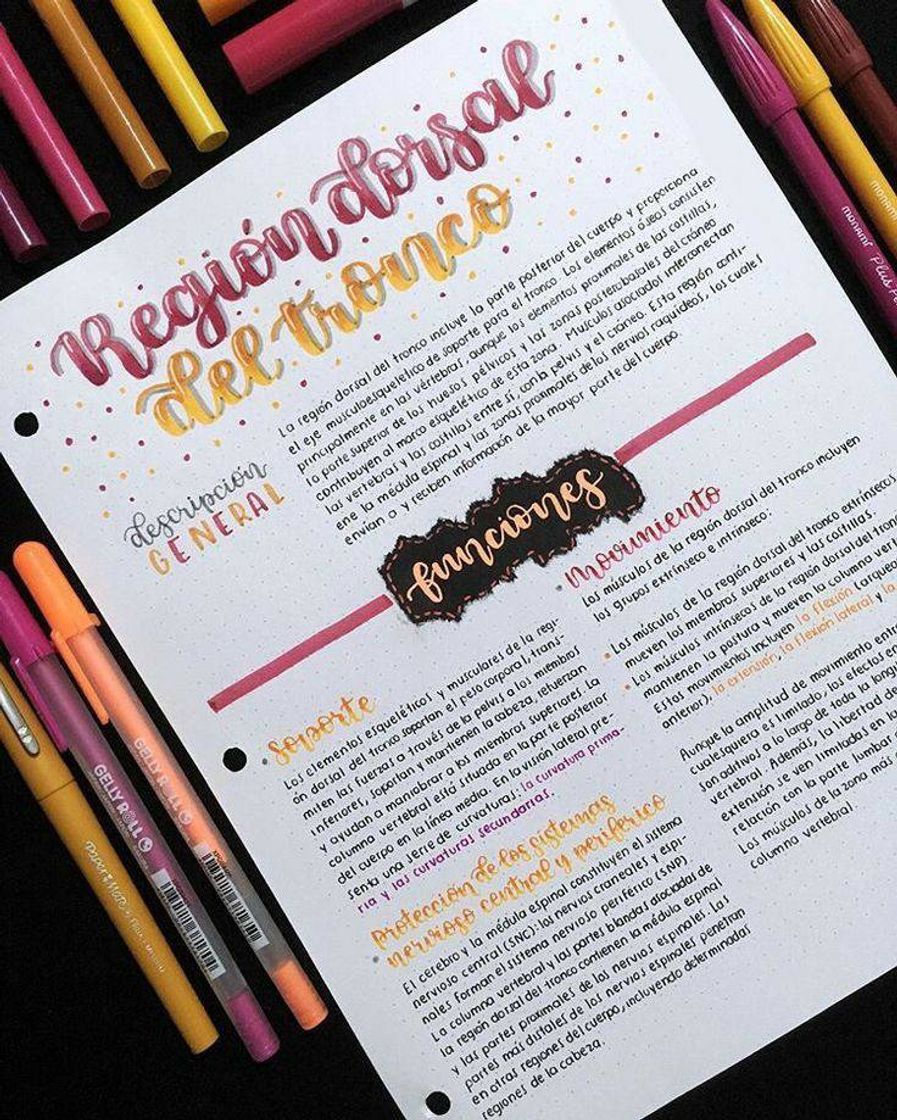 Región dorsal
del tronco
descripción
GENERAL
La región dorsal del tronco incluye la parte posterior del cuerpo y proporciona
el eje musculoesquelético de soporte para el tronco. Los elementos óseos consisten
principalmente en las vértebras, aunque los elementos proximales de las costillas,
la parte superior de los huesos pélvicos y las zonas posterobasales del cráneo
contribuyen al marco esquelético de esta zona. Músculos asociados interconectan
las vértebras y las costillas entre sí, con la pelvis y el cráneo. Esta región conti-
ene la médula espinal y las zonas proximales de los nervios raquídeos, los cuales
envían a y reciben información de la mayor parte del cuerpo.
funciones
Soporte
Los elementos esqueléticos y musculares de la regi-
ón dorsal del tronco soportan el peso corporal, trans-
miten las fuerzas a través de la pelvis a los miembros
inferiores, soportan y mantienen la cabeza, refuerzan
y ayudan a maniobrar a los miembros superiores. La
columna vertebral está situada en la parte posterior
del cuerpo en la línea media. En la visión lateral pre-
senta una serie de curvaturas: la curvatura prima-
ria y las curvaturas secundarias.
Protección de los sistemas
nervioso central y periférico
El cerebro y la médula espinal constituyen el sistema
nervioso central (SNC); los nervios craneales y espi-
nales forman el sistema nervioso periférico (SNP)
La columna vertebral y las partes blandas asociadas de
la región dorsal del tronco contienen la médula espinal
y las partes proximales de los nervios espinales. Las
partes más distales de los nervios espinales penetran
en otras regiones del cuerpo, incluyendo determinadas
regiones de la cabeza.
Movimiento
Los músculos de la región dorsal del tronco incluyen
los grupos extrínseco e intrínseco:
Los músculos de la región dorsal del tronco extrínsecos
mueven los miembros superiores y las costillas.
Los músculos intrínsecos de la región dorsal del tron
mantienen la postura y mueven la columna vert
Estos movimientos incluyen la flexión (arquea
anterior), la extensión, la flexión lateral y la
Aunque la amplitud de movimiento entr
cualesquiera es limitado, los efectos en
son aditivos a lo largo de toda la longi
vertebral. Además, la libertad de
extensión se ven limitados en la
relación con la parte lumbar
Los músculos de la zona más
columna vertebral.
GELLY ROLL
GELLY ROLL
PaperMate Flair
monami Plus Pe
monami